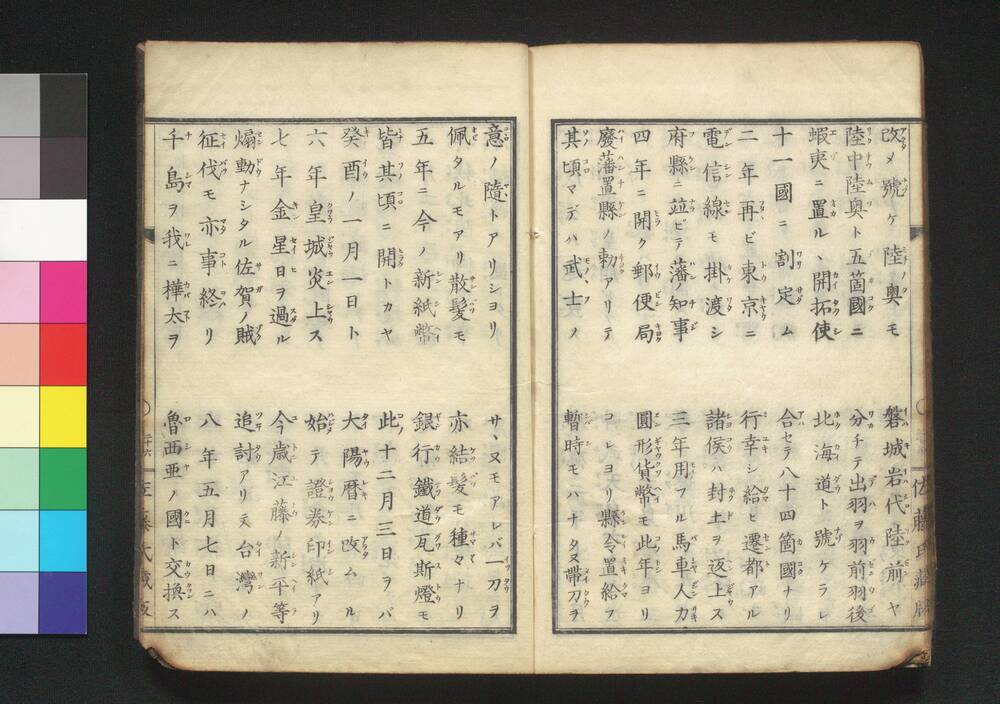 改メ號ケ陸奥モ
磐城岩代陸前ヤ
陸中陸奥ト五箇國ニ
分チテ出羽ヲ羽前羽後
蝦夷ニ置ル、開拓使
北海道ト號ケラレ
十一國ニ割定ム
合セテ八十四箇國ナリ
二年再ビ東京ニ
行幸シ給ヒ遷都アル
電信線モ掛渡シ
諸侯ハ封土ヲ返上ス
府縣ニ竝ビテ藩ノ知事
三年用フル馬車人力
四年ニ開ク郵便局
圓形貨幣モ此年ヨリ
廢藩置縣ノ勅アリテ
コレヨリ縣令置給フ
其頃マデハ武士ノ
暫時モハナタヌ帶刀ヲ
意ノ隨トアリシヨリ
サヽヌモアレバ一刀ヲ
佩タルモアリ散髪モ
亦結髪モ種々ナリ
五年ニ今ノ新紙幣
銀行鐵道瓦斯燈モ
皆其頃ニ開トカヤ
此十二月三日ヲバ
癸酉ノ一月一日ト
大陽暦ニ改ムル
六年皇城炎上ス
始テ證券印紙アリ
七年金星日ヲ過ル
今歳江藤ノ新平等
煽動ナシタル佐賀ノ賊
追討アリテ台灣ノ
征伐モ亦事終リ
八年五月七日ニハ
千島ヲ我ニ樺太ヲ
魯西亜ノ國ト交換ス